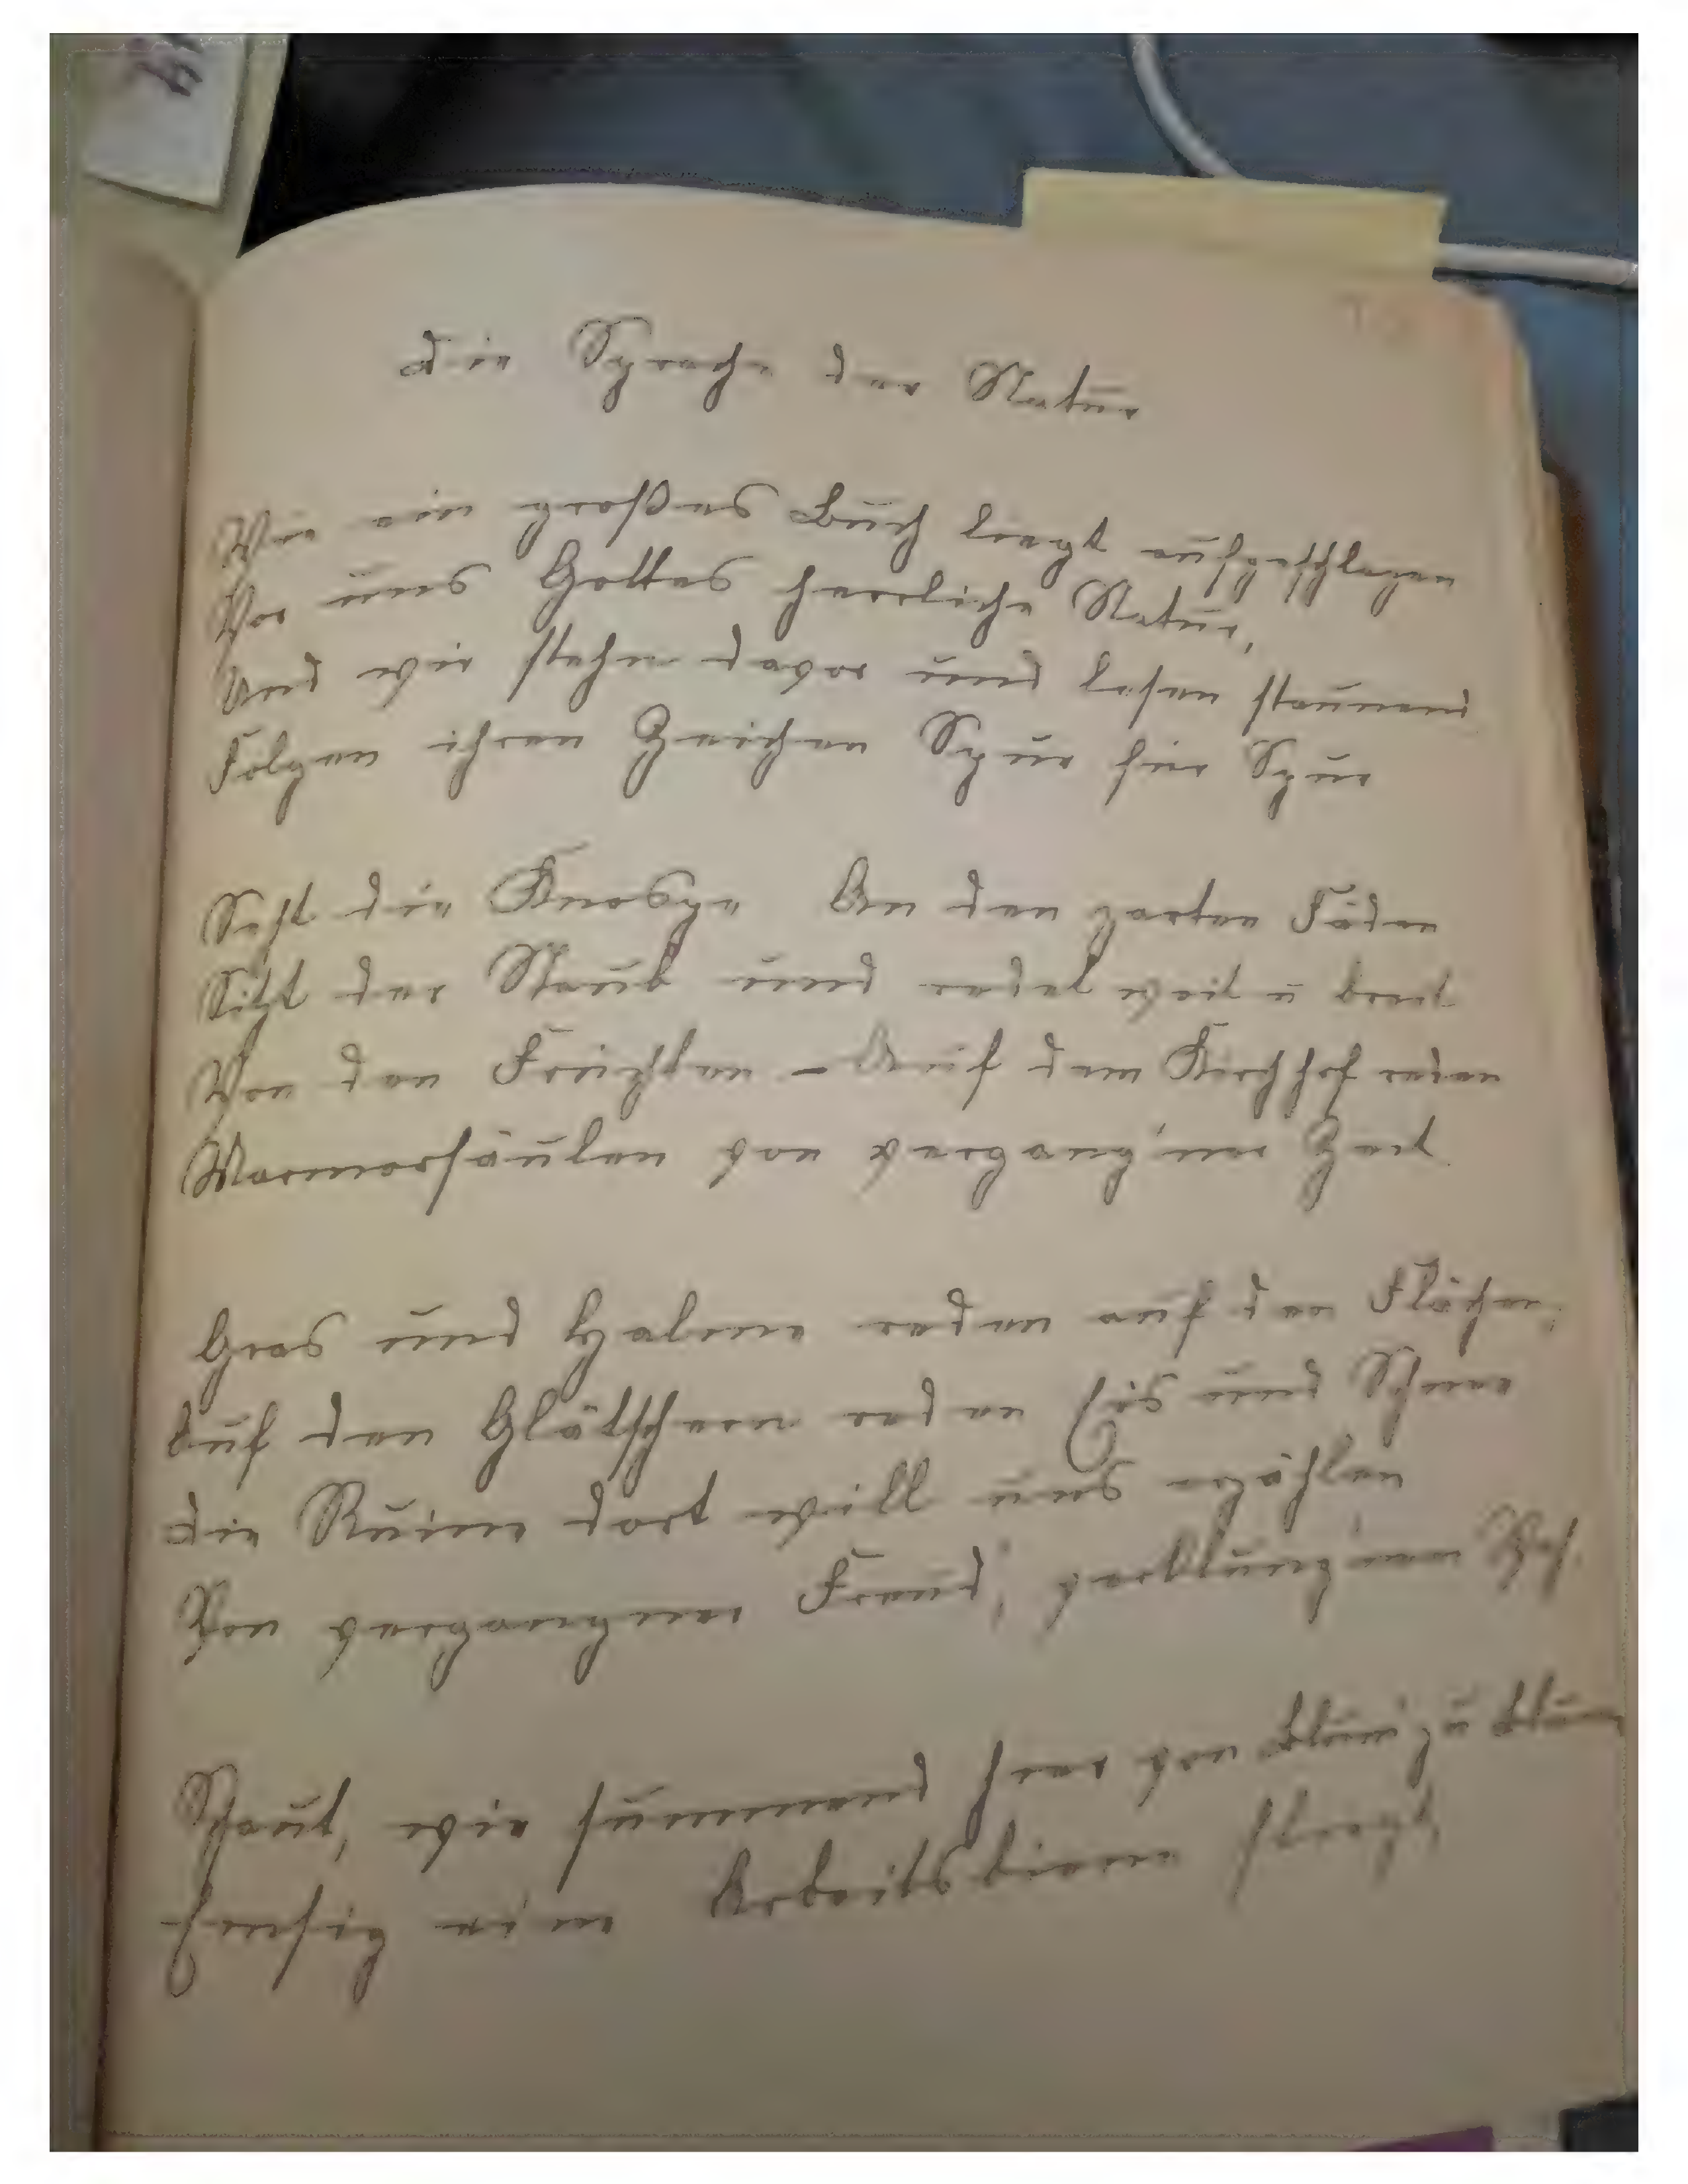 Die Sprache der Natur
Wie ein großes Buch liegt aufgeschlagen
Vor uns Gottes herrliche Natur,
Und wir stehn davor und lesen staunend
Folgen ihren Zeichen Spur für Spur
Seht die Knospe An den zarten Fäden
Sitzt der Staub und redet weit u breit
Von den Früchten – Auf dem Kirchhof reden
Marmorsäulen von vergang'ner Zeit
Gras und Halme reden auf den Flächen,
Auf den Glätschern reden Eis und Schnee
Die Ruine dort will uns erzählen
Von vergangner Freud', verklung'nem Weh.
Schaut, wie summend hier von Blum' zu Blume
Emsig eine Arbeitsbiene fliegt,